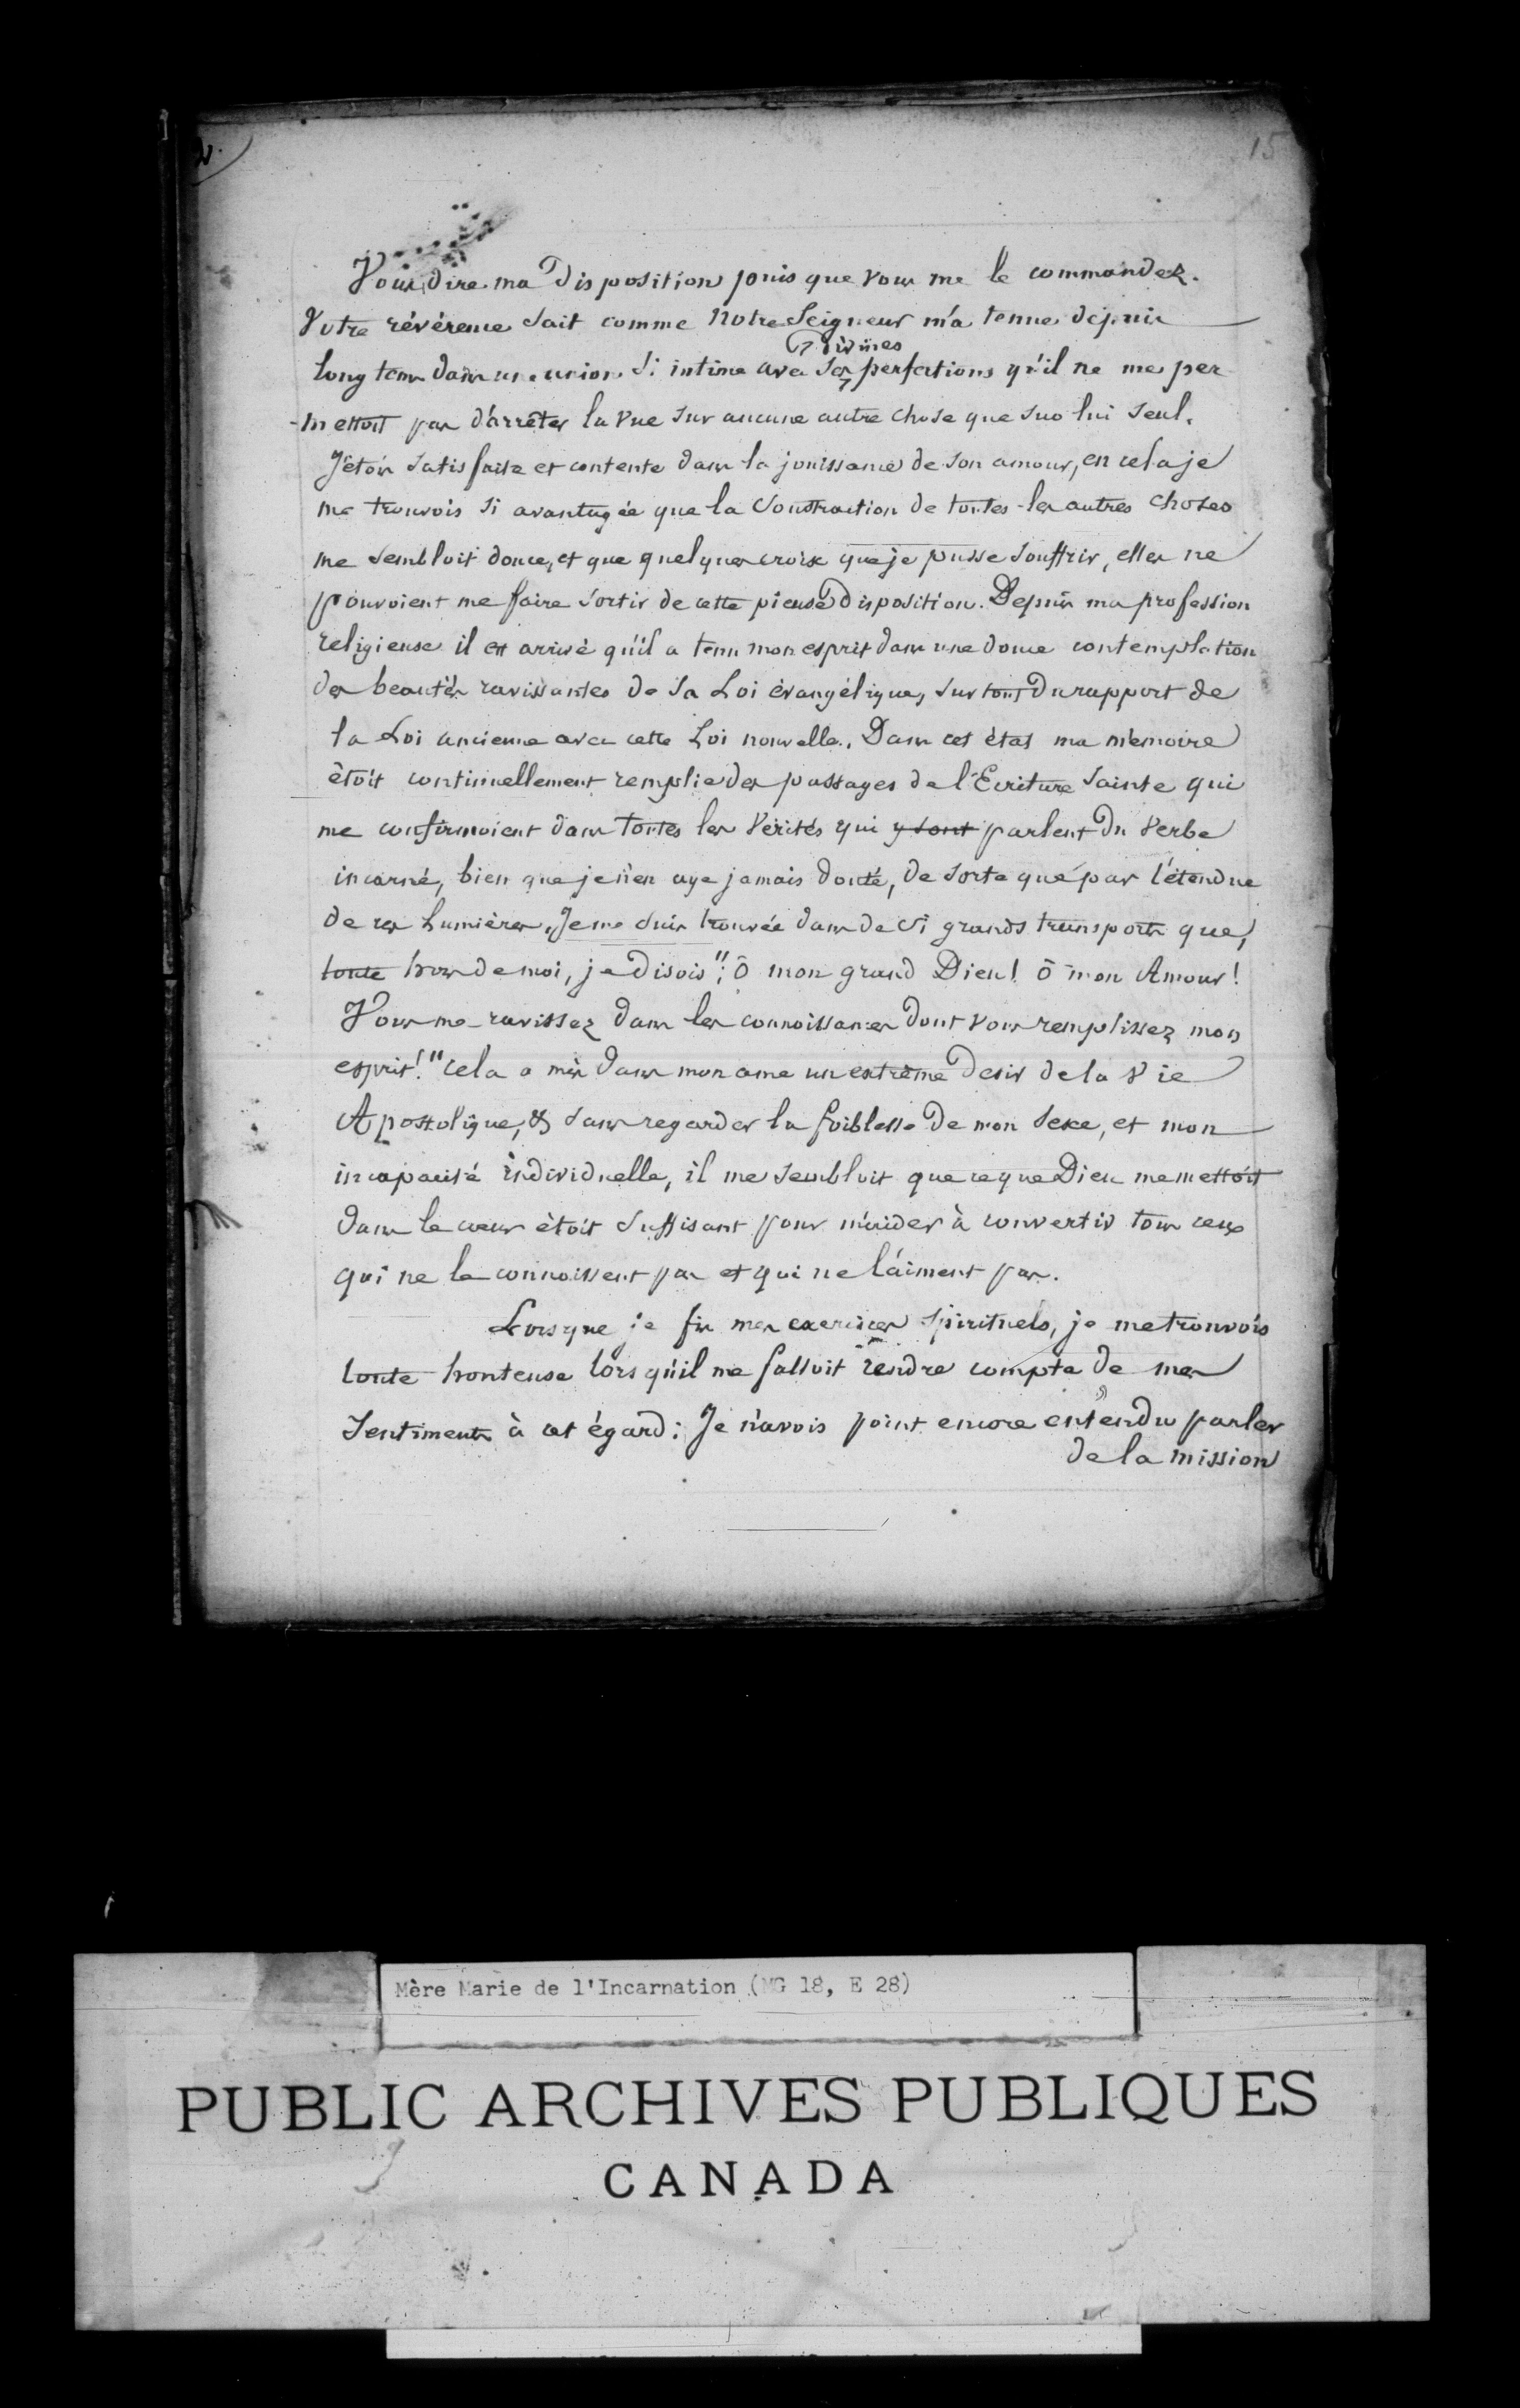 15
Vous dire ma Disposition puis que vous me le commandez.
Votre révérence sait comme Notre Seigneur m'a tenue depuis
Divines
long tems dans une union si intime avec ses perfections qu'il ne me per
-mettoit pas d'arrêter la vue sur aucune autre chose que sur lui seul.
J'étois satisfaite et contente dans la jouissance de son amour, en cela je
me trouvois si avantagée que la soustraction de toutes les autres choses
me sembloit douce, et que quelques croix que je pusse souffrir, elles ne
pouvoient me faire sortir de cette pieuse Disposition. Depuis ma profession
religieuse il est arrivé qu'il a tenu mon esprit dans une douce contemplation
des beautés ravissantes de sa Loi évangélique, sur tout du rapport de
la Loi ancienne avec cette Loi nouvelle. Dans cet état ma mémoire
étoit continuellement remplie des passages de l'Ecriture Sainte qui
me confirmoient dans toutes les Vérités qui y sont parlent du Verbe
incarné, bien que je n'en aye jamais douté, de sorte que par l'étendue
de ces Lumières, Je me suis trouvée dans de si grands transports que,
toute hors de moi, je disois": ô mon grand Dieu! ô mon Amour!
Vous me ravissez dans les connoissances dont vous remplissez mon
esprit!" cela a mis dans mon ame un extrême desir de la Vie
Apostolique, & sans regarder la foiblesse de mon sexe, et mon
incapacité individuelle, il me sembloit que ce que Dieu me mettoit
dans le cœur étoit suffisant pour m'aider à convertir tous ceux
qui ne le connoissent pas et qui ne l'aiment pas.
Lorsque je fis mes exercices spirituels, je me trouvois
toute honteuse lors qu'il me falloit rendre compte de mes
Sentiments à cet égard: Je n'avois point encore entendu parler
de la mission
Mère Marie de l'Incarnation (MG 18, E 28)
PUBLIC ARCHIVES PUBLIQUES
CANADA